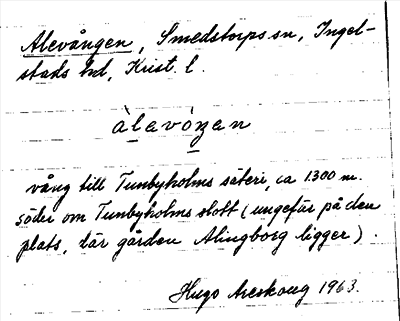 Alevången, Smedstorps sn, Ingel-
stads hd, Krist. l.
àlavóŋen
vång till Tunbyholms säteri, ca 1300 m.
söder om Tunbyholms slott (ungefär på den
plats, där gården Alingborg ligger).
Hugo Areskoug 1963.